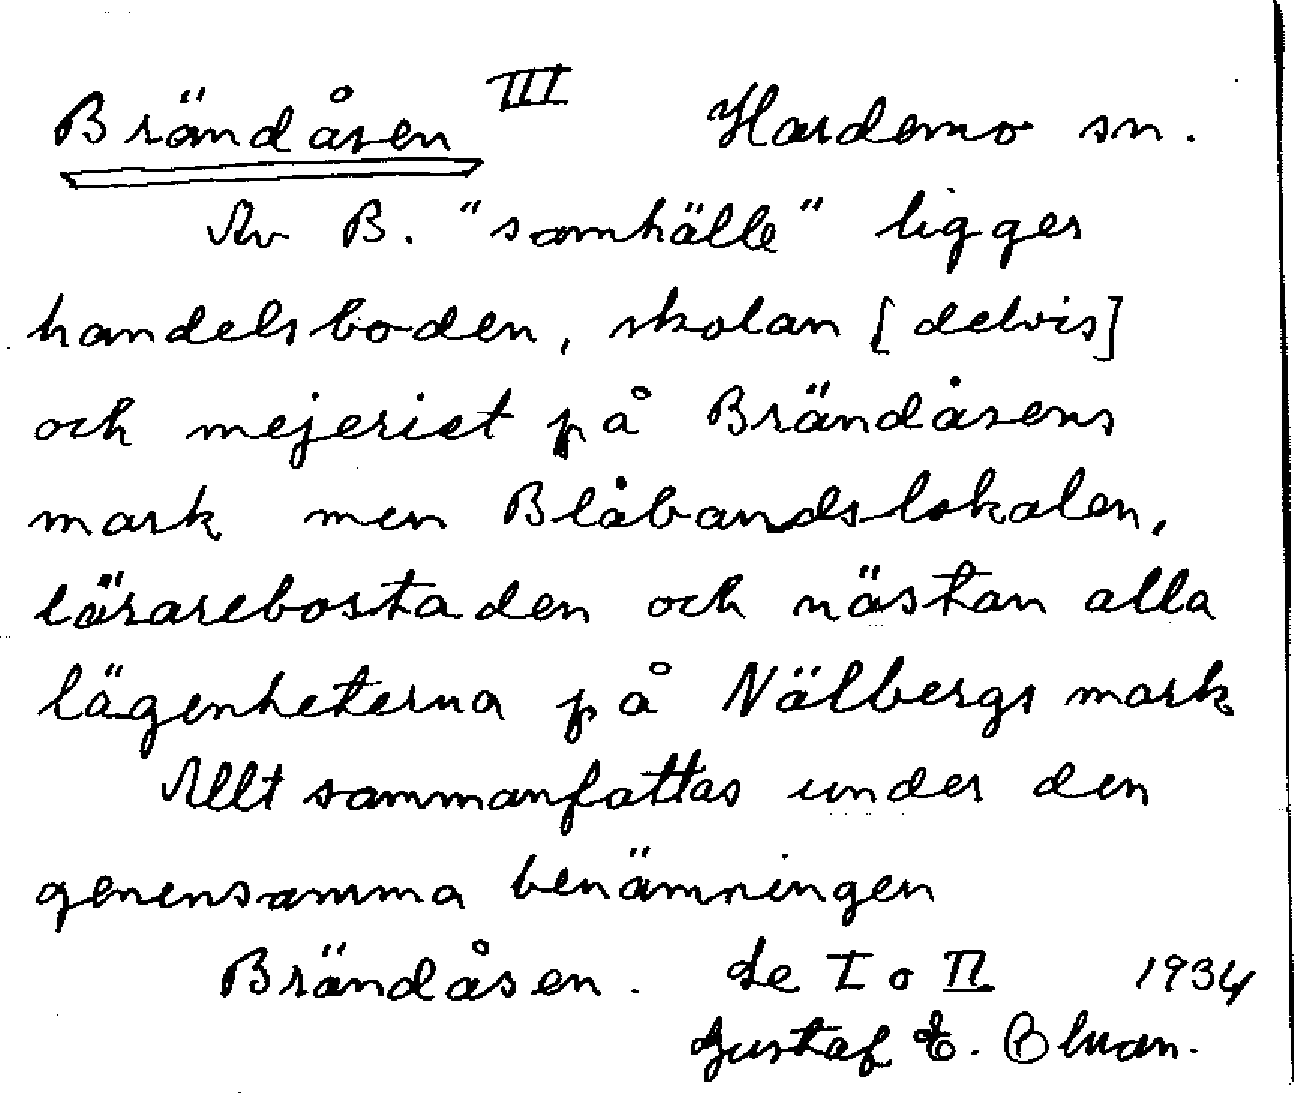 Brändåsen III Hardemo sn.
Av B. "samhälle" ligger
handelsboden, skolan [delvis]
och mejeriet på Brändåsens
mark men Blåbandslokalen,
lärarebostaden och nästan alla
lägenheterna på Nälbergs mark
Allt sammanfattas under den
genensamma benämningen
Brändåsen. Se I o II 1934
Gustaf E.